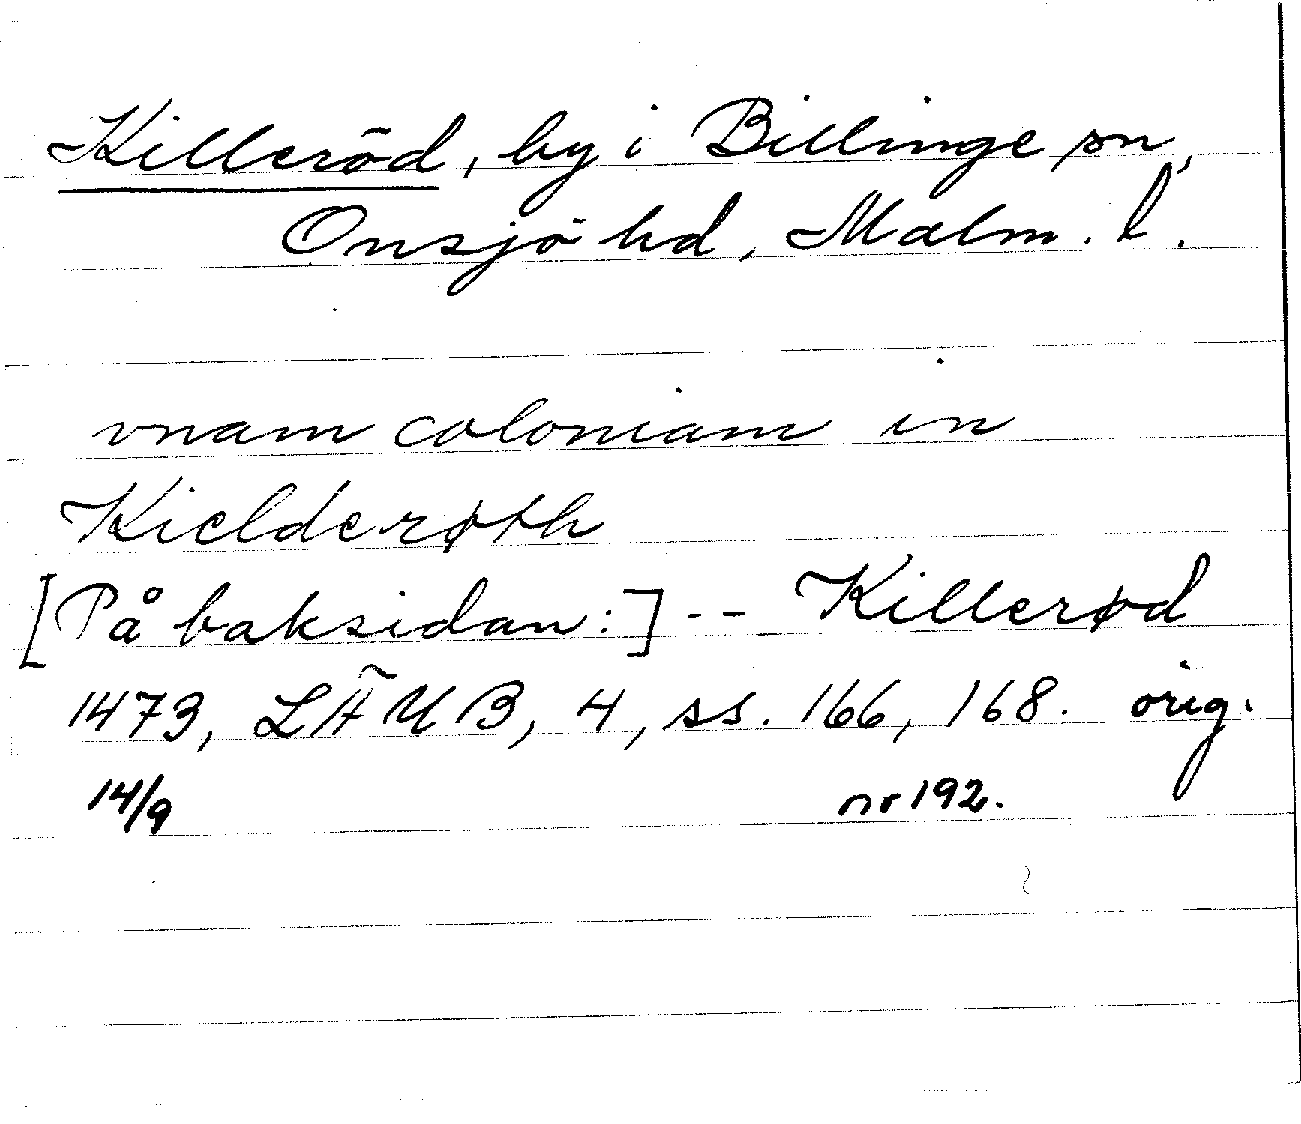 Killeröd, by i Billinge sn,
Onsjö hd, Malm. l.
vnam coloniam in
Kielderøth
[På baksidan:] -- Killerød
1473, LÄUB, 4, ss. 166, 168. orig.
14/9 nr 192.